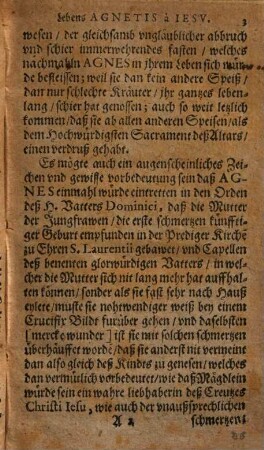 Lebens AGNETIS à IESV. 3
wesen / der gleichsamb vnglaublicher abbruch
vnd schier immerwehrendes fasten / welches
nachmahln AGNES in jhrem Leben sich wür-
de befleissen; weil sie dan kein andere Speiß /
dan nur schlechte Kräuter / jhr gantzes leben-
lang / schier hat genossen; auch so weit letzlich
kommen / daß sie ab allen anderen Speisen / als
dem Hochwürdigsten Sacrament deß Altars /
einen verdruß gehabt.
Es mögte auch ein augenscheinliches Zei-
chen vnd gewisse vorbedeutung sein daß AG-
NES einmahl würde eintretten in den Orden
deß H. Vatters Dominici, daß die Mutter
der Jungfrawen / die erste schmertzen künffti-
ger Geburt empfunden in der Prediger Kirche
zu Ehren S. Laurentii gebawet / vnd Capellen
deß benenten glorwürdigen Vatters / in wel-
cher die Mutter sich nit lang mehr hat auffhal-
ten können / sonder als sie fast sehr nach Hauß
eylete / muste sie nohtwendiger weiß bey einem
Crucifix Bildt fürüber gehen / vnd daselbsten
[mercke wunder] ist sie mit solchen schmertzen
überhäuffet wordē / daß sie anderst nit vermeine
dan also gleich deß Kindts zu genesen / welches
dan vermütlich vorbedeutet / wie daß Mägdlein
würde sein ein wahre liebhaberin deß Creutzes
Christi Iesu, wie auch der vnaußsprechlichen
A 2 schmertzen /